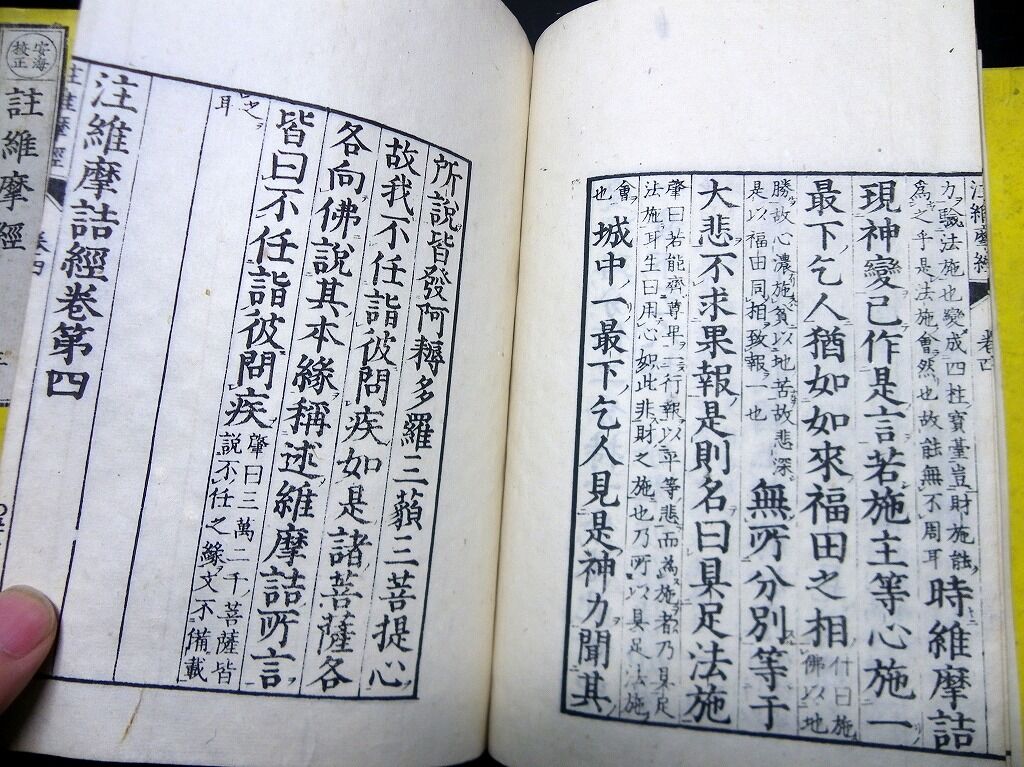 注維摩經 卷四
力驗法施也變成四柱寶臺豈財施能
為之乎是法施會然也故能無不周耳
時維摩詰
現神變已作是言若施主等心施一
最下乞人猶如如來福田之相
什曰施
佛以地
勝故心濃施貧以地苦故悲深
是以福田同相致報一也
無所分別等于
大悲不求果報是則名曰具足法施
肇曰若能齊尊卑一行報以平等悲而為施者乃具足
法施耳生曰用心如此非財之施也乃所以具足法施
會
也
城中一最下乞人見是神力聞其
所說皆發阿耨多羅三藐三菩提心
故我不任詣彼問疾如是諸菩薩各
各向佛說其本緣稱述維摩詰所言
皆曰不任詣彼問疾
肇曰三萬二千菩薩皆
說不任之緣文不備載
之
耳
注維摩詰經卷第四
註維摩經 卷四
安海
校正
註維摩經